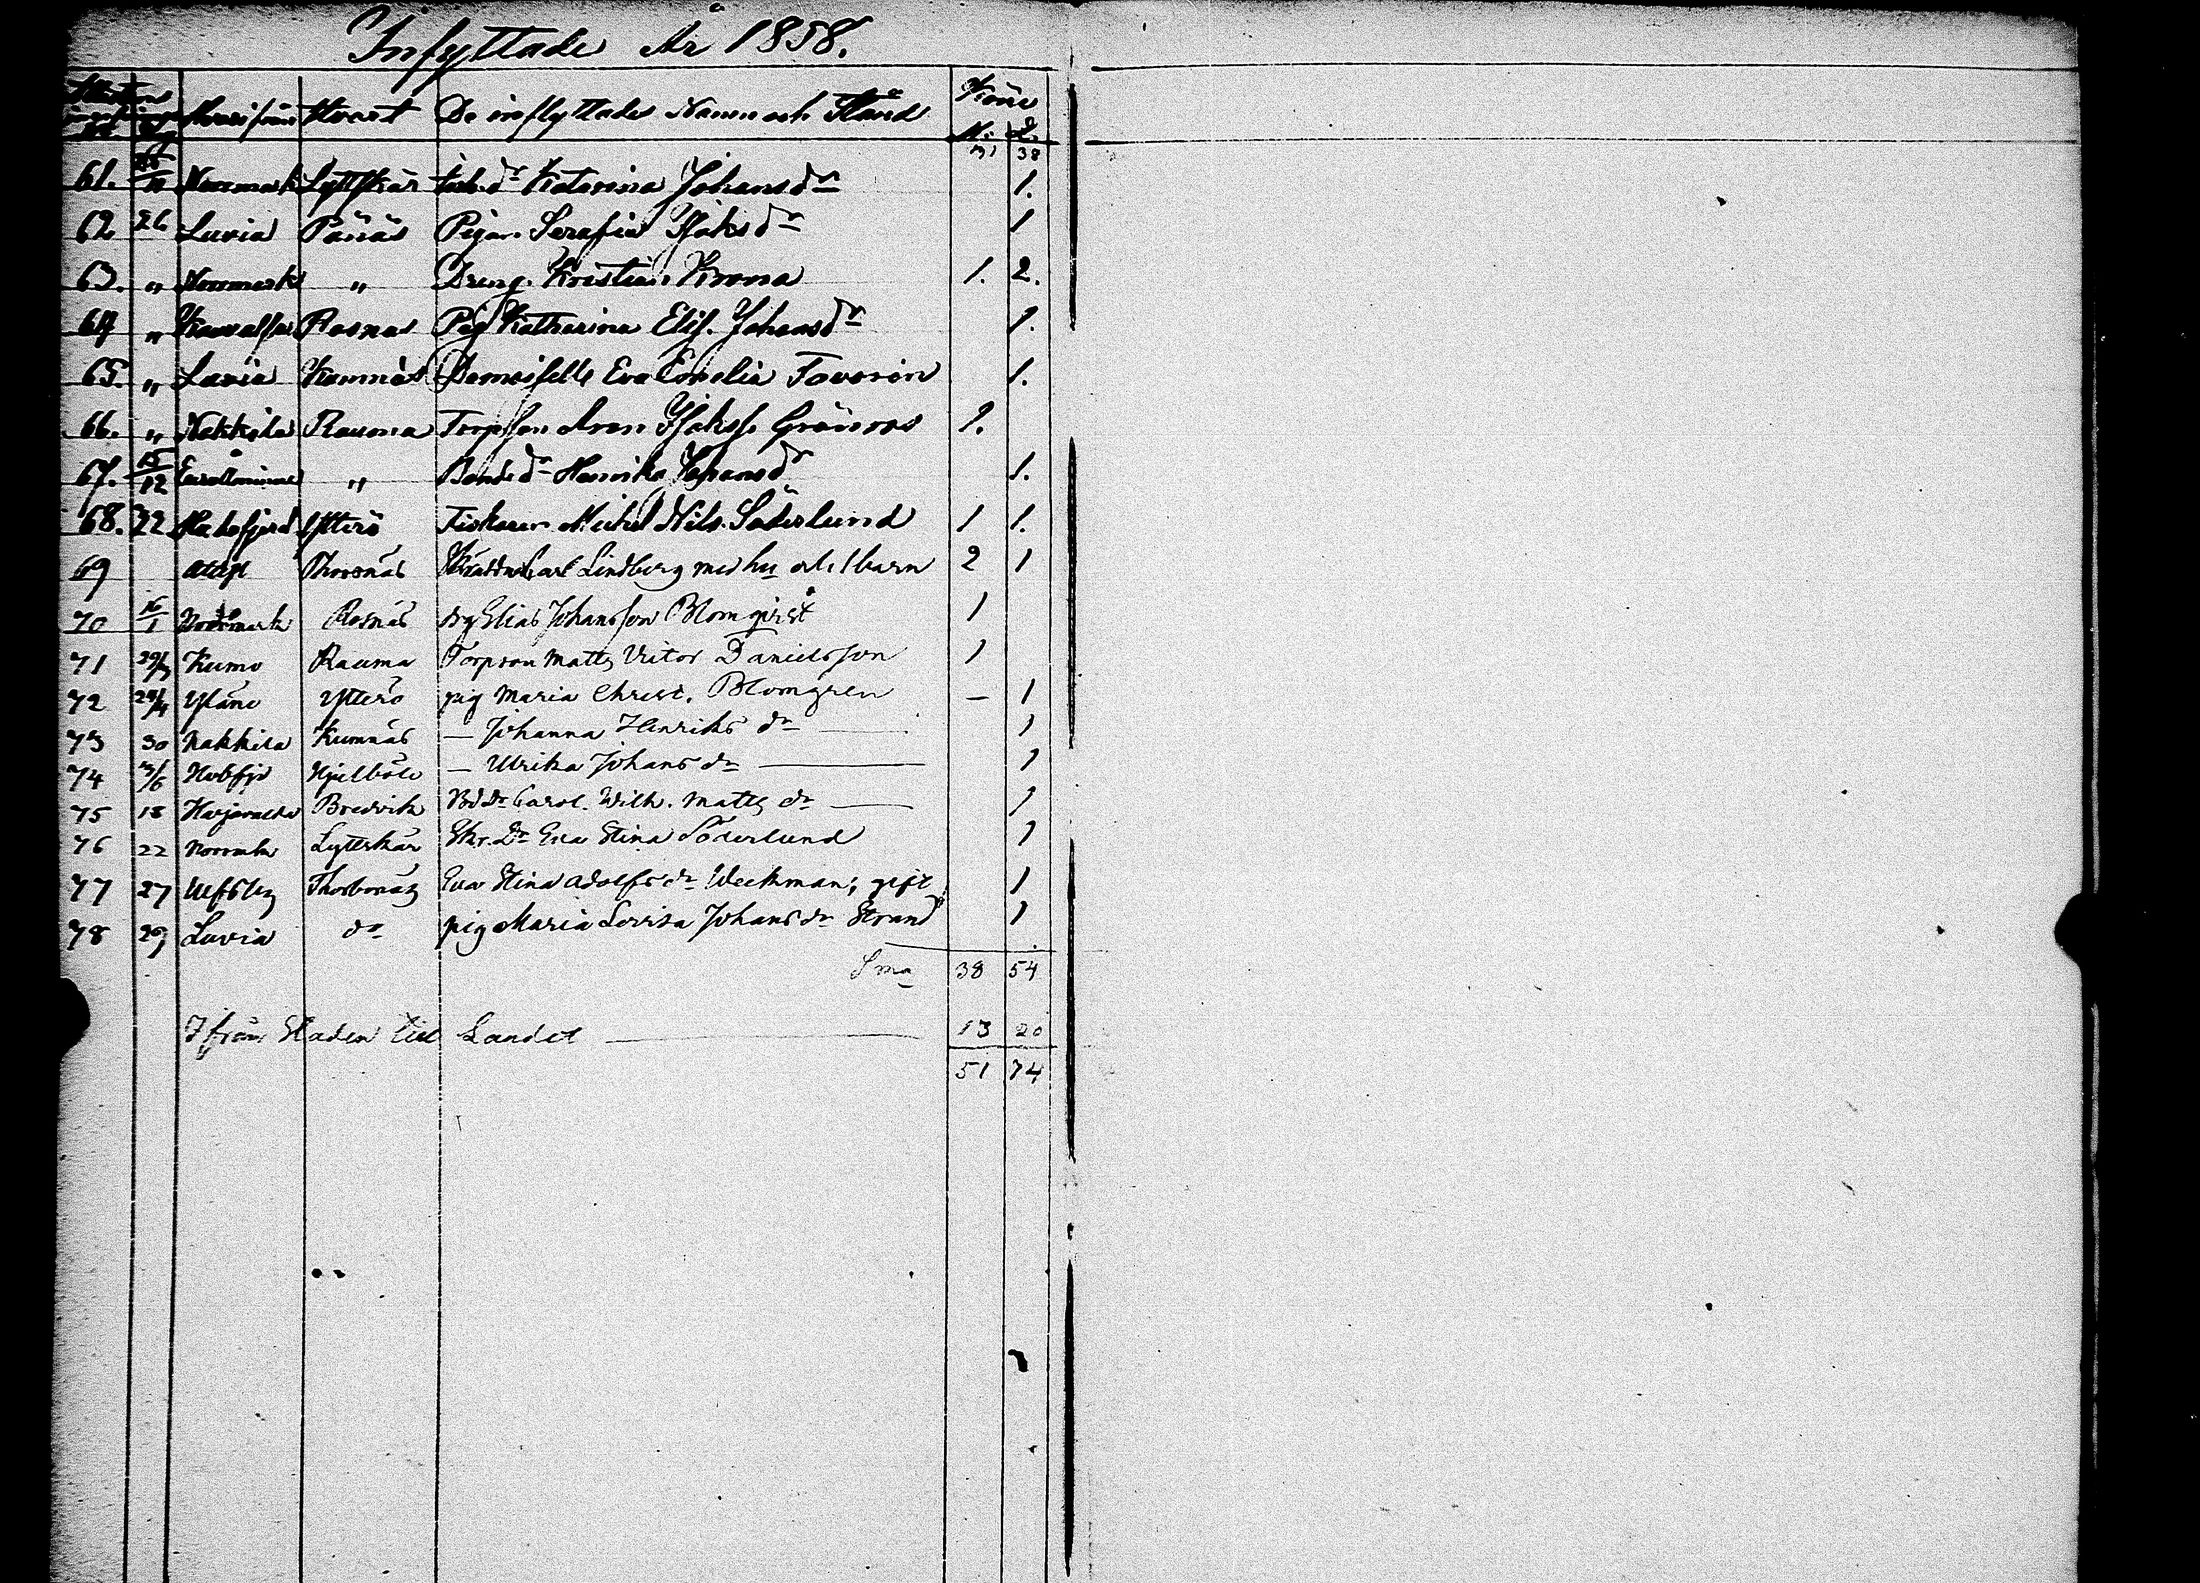 Inflyttade År 1858.
Hvarifrån Hvart De inflyttades Namn och Stånd Köne
M. Q.
31 38
61. Norrmark Lyttskär d:r Katarina Johansd:r 1.
62 26 Luvia Pänäs Pigan Serafia Isaksd:r 1
63. " Norrmark " Dreng. Kristian Krona 1. 2.
64 " Rosnäs Pig Katharina Elis. Johansd:r 1.
65. " Luvia Kumnäs Demoiselle Eva Emelia Favorin 1.
66. " Nakkila Rauma Torpson Aron Isakss. Grönroos 1.
67. 15/12 Euraåminne " Bonded:r Henrika Johansd:r 1.
68. 22 Hvitisfjerd Ytterö Fiskaren Mickel Nils. Söderlund 1 1.
69 attest Thorsnäs Carl Lindberg med hu och 1 barn 2 1
70 16/1 Norrmark Rosnäs dr Elias Johansson Blomqvist 1
71 29/3 Kumo Rauma Torpson Matts Victor Danielsson 1
72 29/4 Yläne Ytterö pig Maria Christ. Blomgren — 1
73 30 Nakkila Kumnäs — Johanna Henriks dr — 1
74 3/6 Hvbfjd Hjulböle — Ulrika Johans dr — 1
75 18 Harjavalta Bredvik Bd Dr Carol. Wilh. Matts dr — 1
76 22 Norrmk Lyttskär Skr. Dr Eva Stina Söderlund 1
77 27 Ulfsby Thorbonäs Eva Stina Adolfs dr Weckman; gift 1
78 29 Luvia do pig Maria Lovisa Johans dr Strand 1
S:ma 38 54
Ifrån Staden till Landet — 13 20
51 74